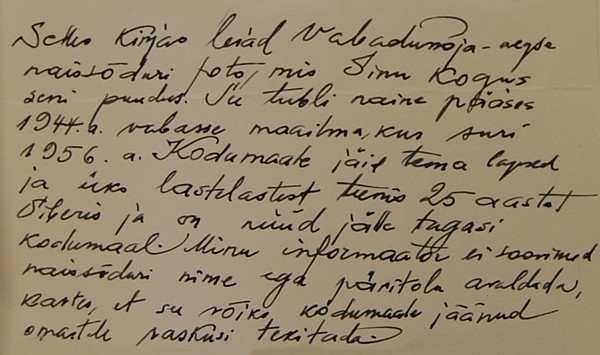 Selles kirjas leiad Vabadussõja-aegse
naissõduri foto, mis Sinu kogus
seni puudus. See tubli naine pääses
1944.a. vabasse maailma, kus suri
1956.a. Kodumaale jäid tema lapsed
ja üks lastelastest teenis 25 aastat
Siberis ja on nüüd jälle tagasi
kodumaal. Minu informaator ei soovinud
naissõduri nime ega päritolu avaldada,
kartes, et see võiks, kodumaale jäänud
omastele raskusi tekitada.